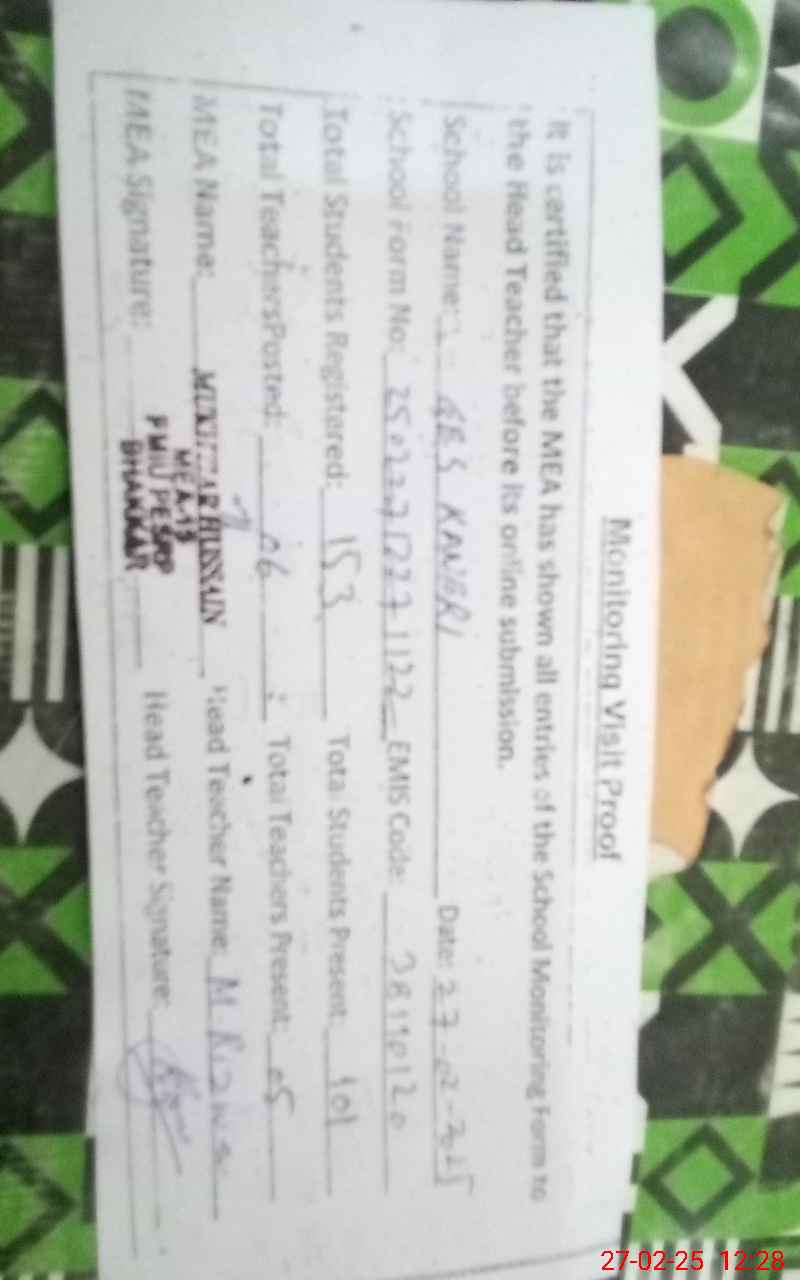 Monitoring Visit Proof
It is certified that the MEA has shown all entries of the School Monitoring Form to
the Head Teacher before its online submission.
School Name: KANERI Date: 27-02-2025
School Form No: EMIS Code:
Total Students Registered: 153 Total Students Present: 101
Total Teachers Posted: 06 Total Teachers Present: 05
MEA Name: HUSSAIN Head Teacher Name: M.
MEA-13
PMIU PESRP
BHAKKAR
MEA Signature: Head Teacher Signature:
27-02-25 12:28